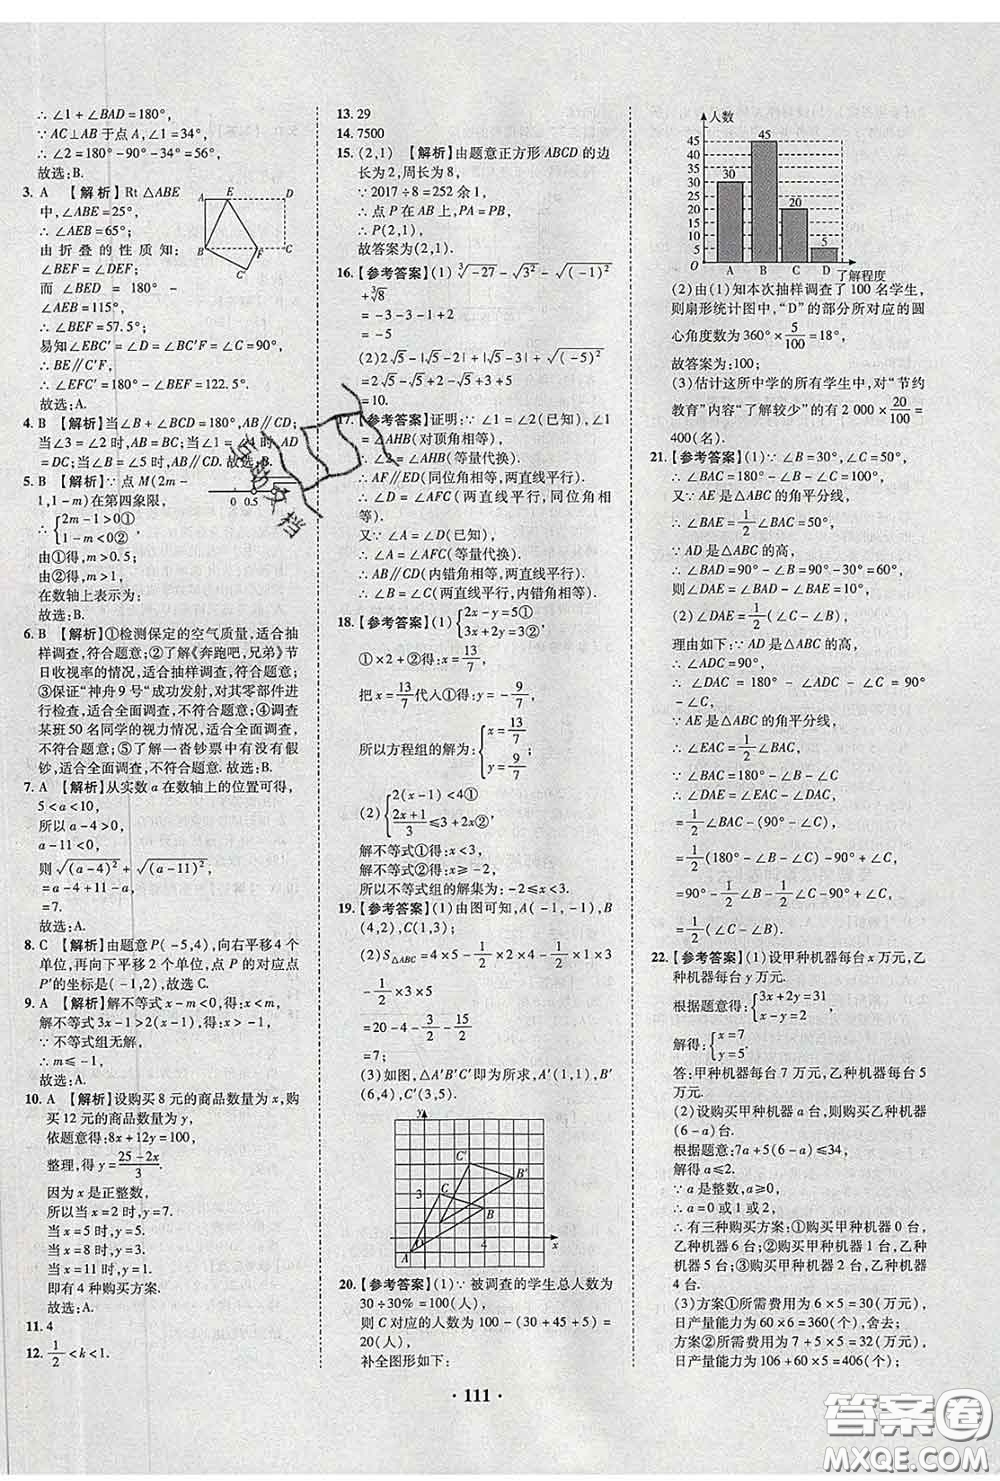 ∴ ∠1 + ∠BAD = 180°,
∵ AC⊥AB于点A,∠1 = 34°,
∴ ∠2 = 180° - 90° - 34° = 56°,
故选:B.
3. A 【解析】Rt △ABE
中,∠ABE = 25°,
∴ ∠AEB = 65°;
由折叠的性质知:
∠BEF = ∠DEF;
而 ∠BED = 180° -
∠AEB = 115°,
∴ ∠BEF = 57.5°;
易知∠EBC′ = ∠D = ∠BC′F = ∠C = 90°,
∴ BE∥C′F,
∴ ∠EFC′ = 180° - ∠BEF = 122.5°.
故选:A.
4. B 【解析】当∠B + ∠BCD = 180°,AB∥CD;
当∠3 = ∠2 时,AB = BC;当∠1 = ∠4 时,AD
= DC;当∠B = ∠5 时,AB∥CD. 故选:B.
5. B 【解析】∵ 点 M(2m -
1,1 - m)在第四象限,
0 0.5 1
∴ {2m - 1 > 0①
1 - m < 0②
由①得,m > 0.5;
由②得,m > 1,
在数轴上表示为:
故选:B.
6. B 【解析】①检测保定的空气质量,适合抽
样调查,符合题意;②了解《奔跑吧,兄弟》节
目收视率的情况,适合抽样调查,符合题意;
③保证“神舟 9 号”成功发射,对其零部件进
行检查,适合全面调查,不符合题意;④调查
某班 50 名同学的视力情况,适合全面调查,
不符合题意;⑤了解一沓钞票中有没有假
钞,适合全面调查,不符合题意. 故选:B.
7. A 【解析】从实数 a 在数轴上的位置可得,
5 < a < 10,
所以 a - 4 > 0,
a - 11 < 0,
则 √(a - 4)² + √(a - 11)²,
= a - 4 + 11 - a,
= 7.
故选:A.
8. C 【解析】由题意 P( -5,4),向右平移 4 个
单位,再向下平移 2 个单位,点 P 的对应点
P′的坐标是( -1,2),故选:C.
9. A 【解析】解不等式 x - m < 0,得:x < m,
解不等式 3x - 1 > 2(x - 1),得:x > -1,
∵ 不等式组无解,
∴ m ≤ -1,
故选:A.
10. A 【解析】设购买 8 元的商品数量为 x,购
买 12 元的商品数量为 y,
依题意得:8x + 12y = 100,
整理,得 y = (25 - 2x)/3.
因为 x 是正整数,
所以当 x = 2 时,y = 7.
当 x = 5 时,y = 5.
当 x = 8 时,y = 3.
当 x = 11 时,y = 1.
即有 4 种购买方案.
故选:A.
11. 4
12. 1/2 < k < 1.
13. 29
14. 7500
15. (2,1) 【解析】由题意正方形 ABCD 的边
长为 2,周长为 8,
∵ 2017 ÷ 8 = 252 余 1,
∴ 点 P 在 AB 上,PA = PB,
∴ P(2,1),
故答案为(2,1).
16. 【参考答案】(1) ∛-27 - √3² - √(-1)²
+ ∛8
= -3 - 3 - 1 + 2
= -5
(2)2√5 - |√5 - 2| + |√5 - 3| + √(-5)²
= 2√5 - √5 + 2 + 3 - √5 + 5
= 10.
17. 【参考答案】证明:∵ ∠1 = ∠2(已知),∠1
= ∠AHB(对顶角相等),
∴ ∠2 = ∠AHB(等量代换).
∴ AF∥ED(同位角相等,两直线平行).
∴ ∠D = ∠AFC(两直线平行,同位角相
等).
又∵ ∠A = ∠D(已知),
∴ ∠A = ∠AFC(等量代换).
∴ AB∥CD(内错角相等,两直线平行).
∴ ∠B = ∠C(两直线平行,内错角相等).
18. 【参考答案】(1) {2x - y = 5①
3x + 2y = 3②
① × 2 + ②得:x = 13/7,
把 x = 13/7 代入①得:y = - 9/7,
所以方程组的解为: {x = 13/7
y = - 9/7
(2) {2(x - 1) < 4①
(2x + 1)/3 ≤ 3 + 2x②
解不等式①得:x < 3,
解不等式②得:x ≥ -2,
所以不等式组的解集为: -2 ≤ x < 3.
19. 【参考答案】(1)由图可知,A( -1, -1),B
(4,2),C(1,3);
(2)S△ABC = 4 × 5 - 1/2 × 2 × 4 - 1/2 × 1 × 3
- 1/2 × 3 × 5
= 20 - 4 - 3/2 - 15/2
= 7;
(3)如图,△A′B′C′即为所求,A′(1,1),B′
(6,4),C′(3,5).
y
C′
B′
3
C
B
O
4
x
A
20. 【参考答案】(1)∵ 被调查的学生总人数为
30 ÷ 30% = 100(人),
则 C 对应的人数为 100 - (30 + 45 + 5) =
20(人),
补全图形如下:
人数
45
40
35
30
25
20
15
10
5
0
30
45
20
5
A B C D 了解程度
(2)由(1)知本次抽样调查了 100 名学生,
则扇形统计图中,“D”的部分所对应的圆
心角度数为 360° × 5/100 = 18°,
故答案为:100;
(3)估计这所中学的所有学生中,对“节约
教育”内容“了解较少”的有 2 000 × 20/100 =
400(名).
21. 【参考答案】(1)∵ ∠B = 30°,∠C = 50°,
∴ ∠BAC = 180° - 30° - 50° = 100°.
又∵ AE 是△ABC 的角平分线,
∴ ∠BAE = 1/2 ∠BAC = 50°.
∵ AD 是△ABC 的高,
∴ ∠BAD = 90° - ∠B = 90° - 30° = 60°,
则∠DAE = ∠BAD - ∠BAE = 10°,
(2)∠DAE = 1/2 (∠C - ∠B),
理由如下:∵ AD 是△ABC 的高,
∴ ∠ADC = 90°,
∴ ∠DAC = 180° - ∠ADC - ∠C = 90° -
∠C,
∵ AE 是△ABC 的角平分线,
∴ ∠EAC = 1/2 ∠BAC.
∵ ∠BAC = 180° - ∠B - ∠C
∴ ∠DAE = ∠EAC - ∠DAC,
= 1/2 ∠BAC - (90° - ∠C),
= 1/2 (180° - ∠B - ∠C) - 90° + ∠C,
= 90° - 1/2 ∠B - 1/2 ∠C - 90° + ∠C,
= 1/2 (∠C - ∠B).
22. 【参考答案】(1)设甲种机器每台 x 万元,乙
种机器每台 y 万元.
根据题意得: {3x + 2y = 31
x - y = 2
解得: {x = 7
y = 5.
答:甲种机器每台 7 万元,乙种机器每台 5
万元.
(2)设购买甲种机器 a 台,购买乙种机器
(6 - a)台.
根据题意:7a + 5(6 - a) ≤ 34.
解得 a ≤ 2.
∵ a 是整数,a ≥ 0,
∴ a = 0 或 1 或 2,
∴ 有三种购买方案:①购买甲种机器 0 台,
乙种机器 6 台;②购买甲种机器 1 台,
乙种机器 5 台;③购买甲种机器 2 台,乙种机器
4 台.
(3)方案①所需费用为 6 × 5 = 30(万元),
日产量能力为 60 × 6 = 360(个),舍去;
方案②所需费用为 7 + 5 × 5 = 32(万元),
日产量能力为 106 + 60 × 5 = 406(个);
· 111 ·
答案圈
MXQE.COM